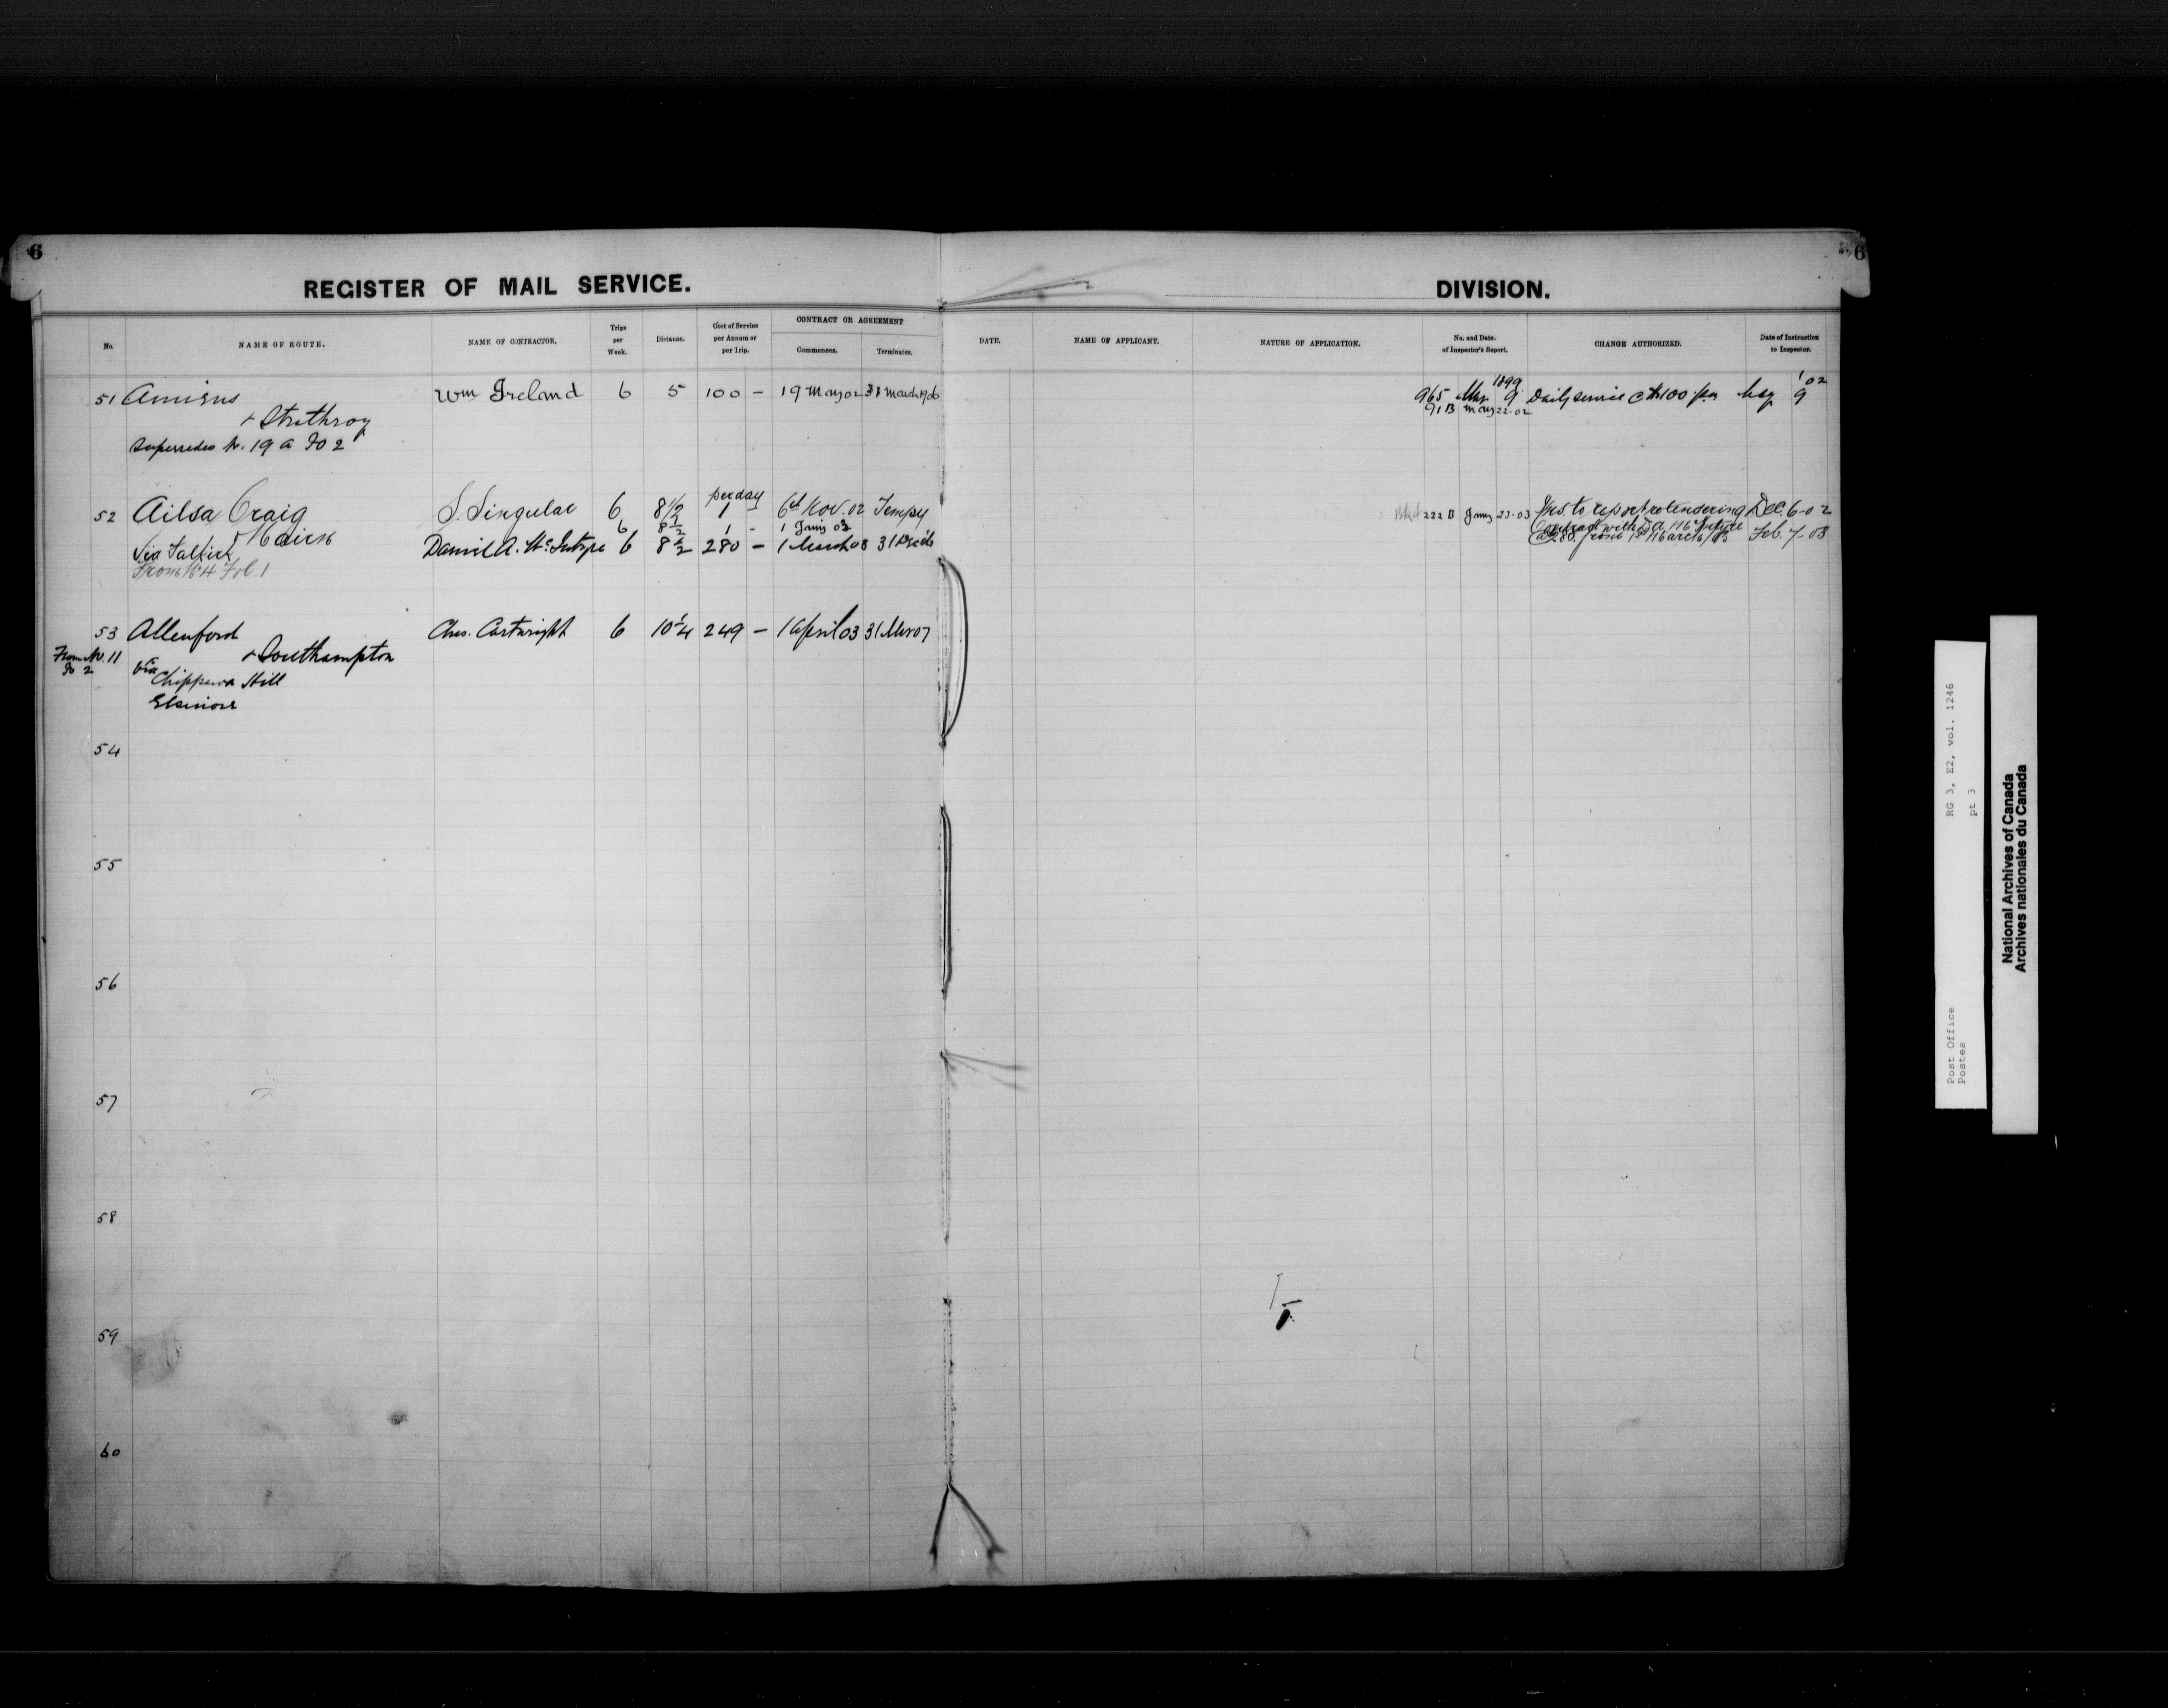 6
REGISTER OF MAIL SERVICE.
DIVISION.
6
No.
NAME OF ROUTE.
NAME OF CONTRACTOR.
Trips per Week.
Distance.
Cost of Service per Annum or per Trip.
CONTRACT OR AGREEMENT
Commences.
Terminates.
DATE.
NAME OF APPLICANT.
NATURE OF APPLICATION.
No. and Date. of Inspector's Report.
CHANGE AUTHORIZED.
Date of Instruction to Inspector.
51 Amiens Wm Ireland 6 5 100 – 19 May 02 31 March 1906
1899
965 Mar 9 Daily service @ $100 pa May 9 1/02
91 B May 22.02
+ Strathroy
Supersedes No. 19 a Fo 2
per day
52 Ailsa Craig S. Singular 6 8 1/2 1 – 6th Nov. 02 Tempy
222 B Jany 23.03 Ins. to report re tendering Dec. 6-02
+ Nairn 6 8 1/2 1 - 1 Jany 03
Via Falkirk Daniel A. McIntyre 6 8 1/2 280 – 1 March 03 31
Contract with D. A. McIntyre
@ 280. from 1st March/03 Feb. 7-03
From No 4 Fol. 1
53 Allenford Chas. Cartwright 6 10 1/4 249 – 1 April 03 31 Mar 07
From No. 11 + Southampton
Fo 2 Via
Chippawa Hill
Elsinore
54
55
56
57
58
59
60
RG 3, E2, vol. 1246
pt 3
Post Office
Postes
National Archives of Canada
Archives nationales du Canada